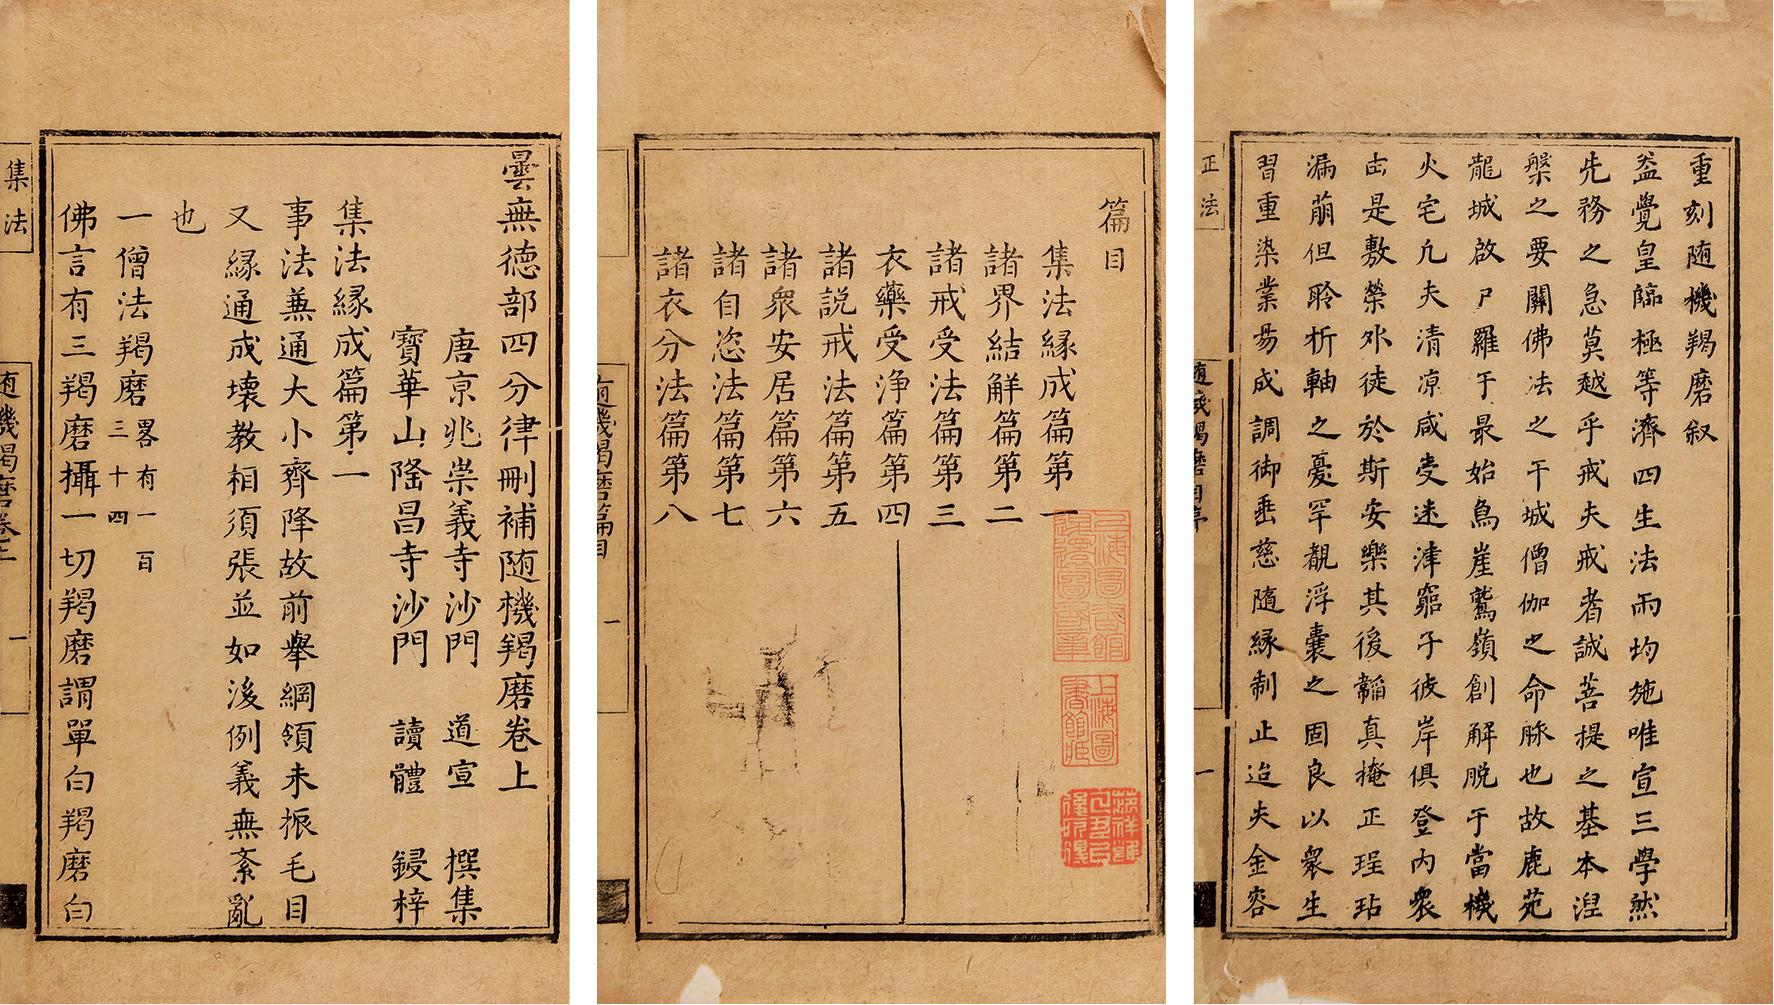 重刻随機羯磨叙
盖覺皇臨極等濟四生法雨均施唯宣三學然
先務之急莫越乎戒夫戒者誠菩提之基本湼
槃之要關佛法之干城僧伽之命脉也故鹿苑
龍城啟尸羅于最始鳥崖鷲嶺創解脱于當機
火宅凢夫清凉咸受迷津窮子彼岸俱登内衆
由是敷榮外徒於斯安樂其後韜真掩正珵玷
漏萠但聆折軸之憂罕覩浮囊之固良以衆生
習重染業易成調御垂慈隨緣制止迨夫金容
正法
随機羯磨目序
一
篇目
集法緣成篇第一
諸界結解篇第二
諸戒受法篇第三
衣藥受淨篇第四
諸説戒法篇第五
諸衆安居篇第六
諸自恣法篇第七
諸衣分法篇第八
上海圖書館
上海圖書館
随機羯磨篇目
一
曇無德部四分律刪補随機羯磨卷上
唐京兆崇義寺沙門 道宣 撰集
寶華山隆昌寺沙門 讀體 鋟梓
集法緣成篇第一
事法兼通大小齊降故前舉綱領未振毛目
又緣通成壊教相須張並如後例義無紊亂
也
一僧法羯磨畧有一百三十四
佛言有三羯磨攝一切羯磨謂單白羯磨白
集法
随機羯磨卷上
一